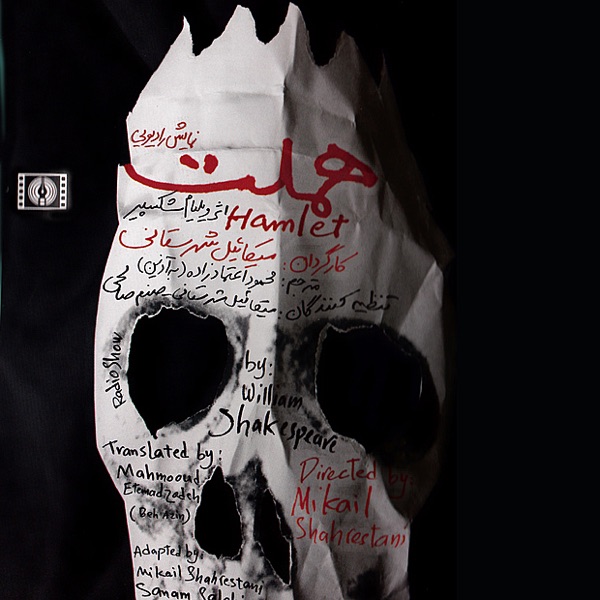 نمایش رادیویی
هملت
اثر ویلیام شکسپیر
Hamlet
کارگردان: میکائیل شهرستانی
مترجم: محمود اعتمادزاده (به آذین)
تنظیم کنندگان: میکائیل شهرستانی - صنم صالحی
Radio Show
by:
William
Shakespeare
Translated by:
Mahmooud
Etemadzadeh
(Beh Azin)
Directed by:
Mikail
Shahrestani
Adapted by:
Mikail Shahrestani
Sanam Salehi